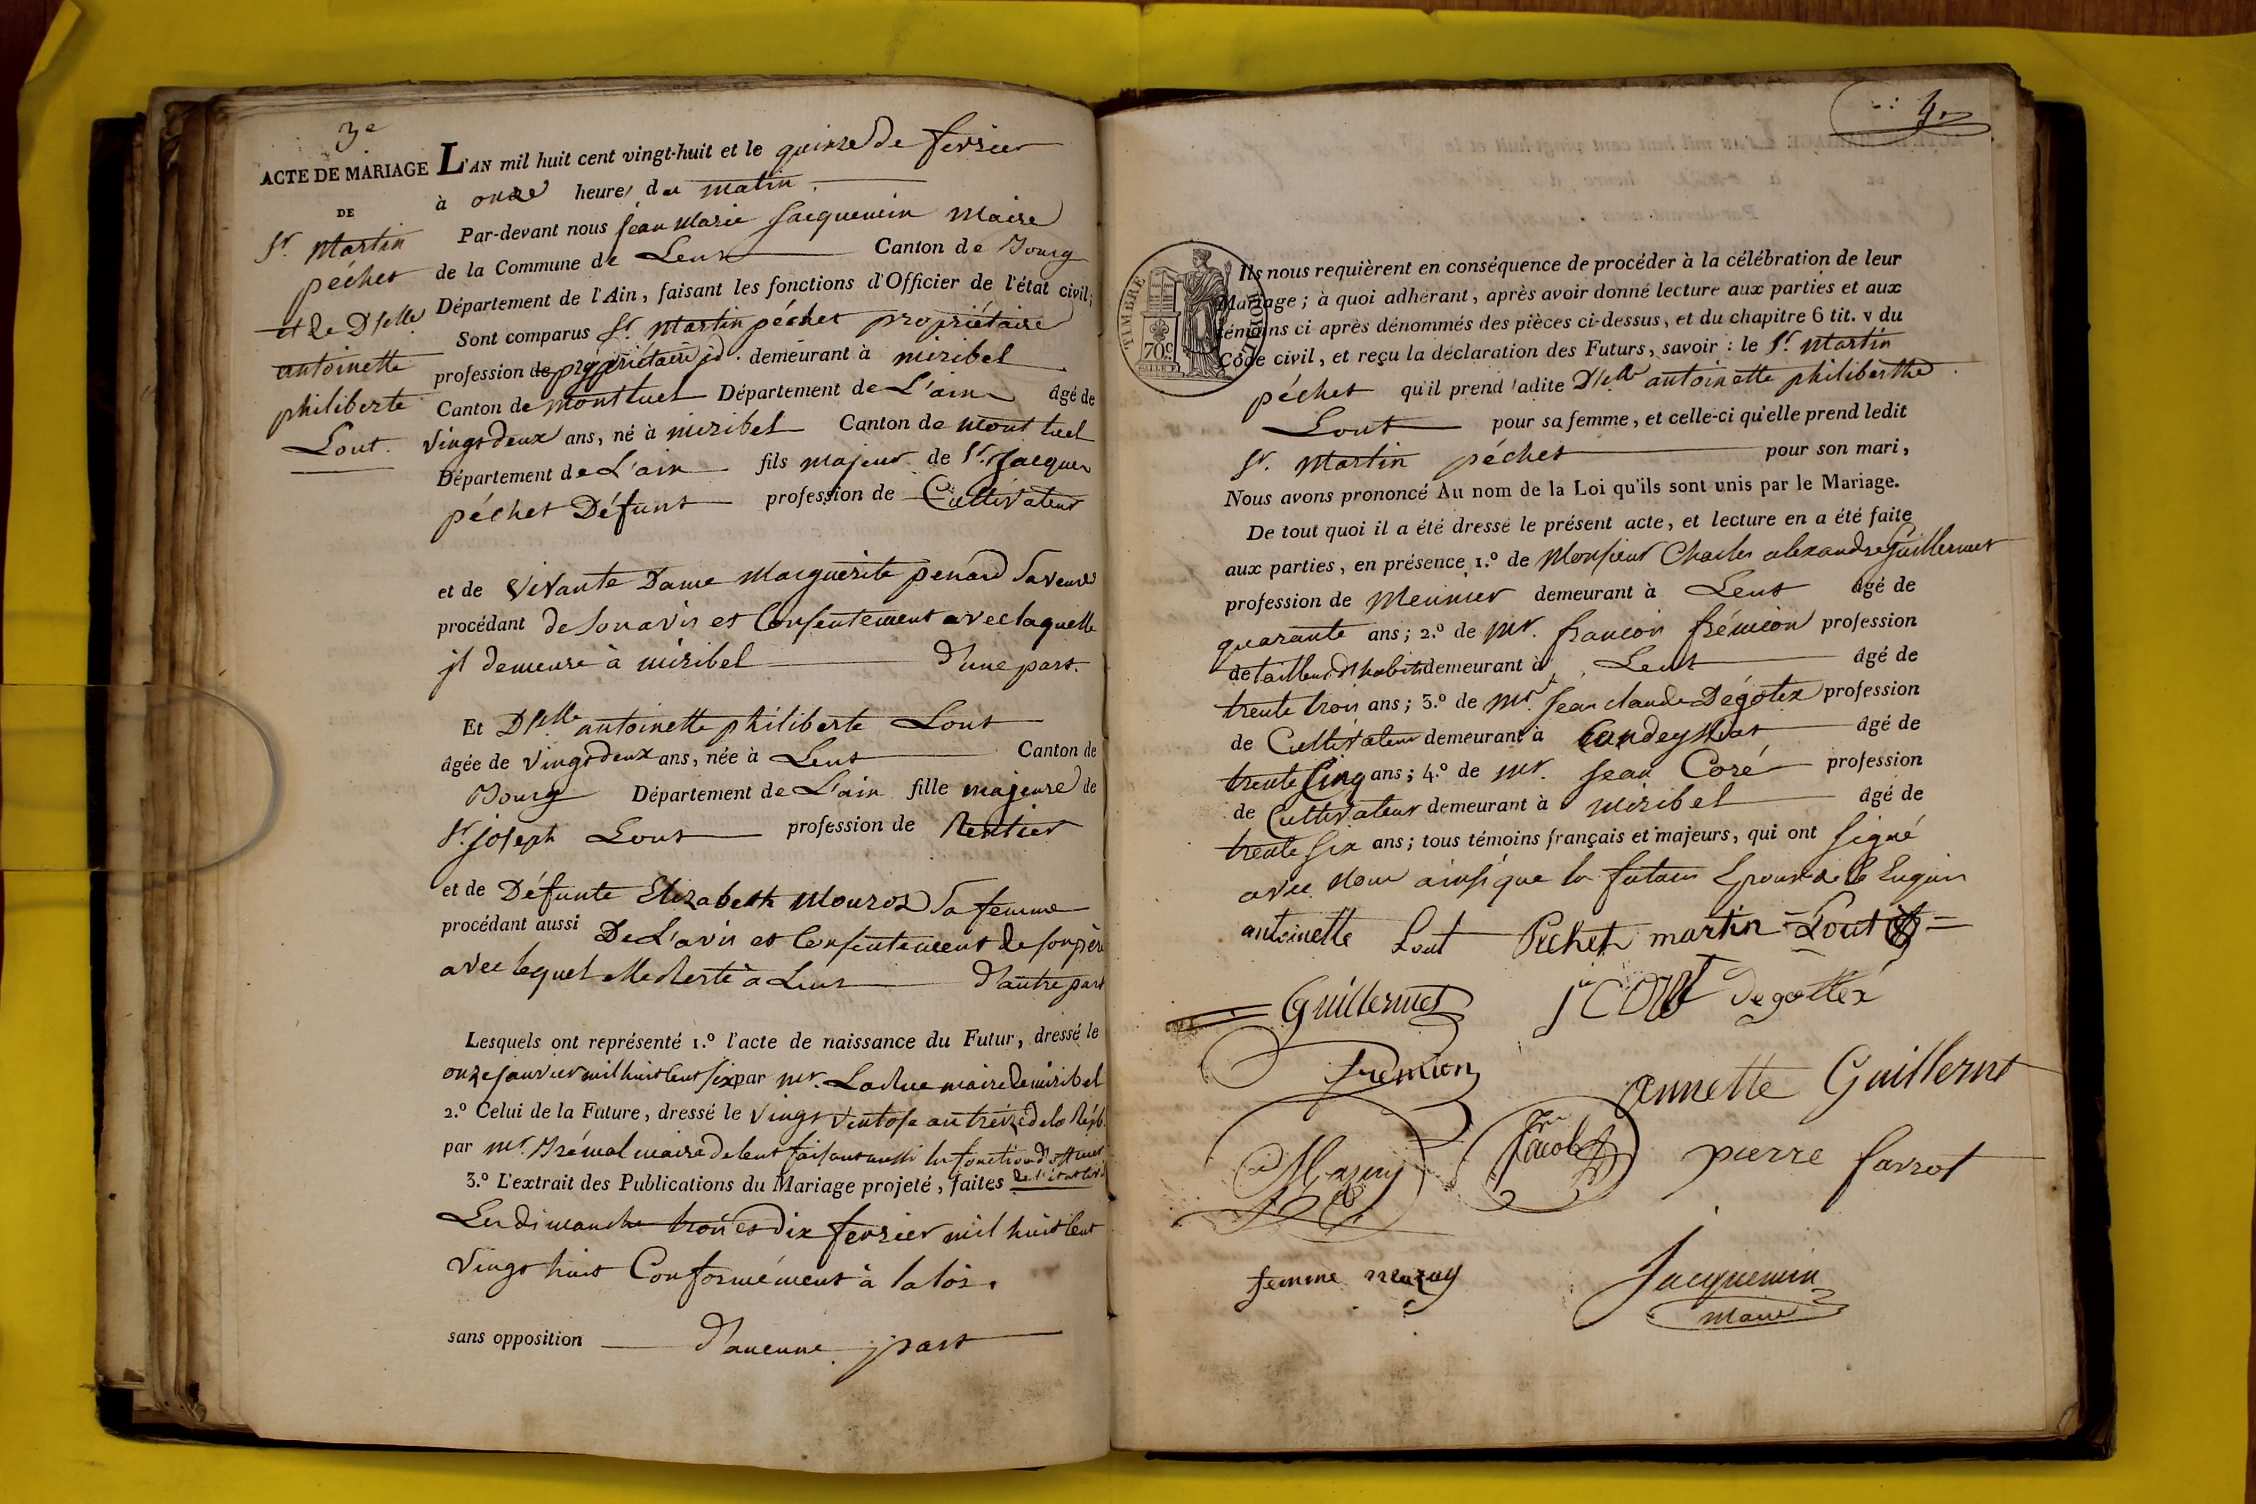 3e
ACTE DE MARIAGE
DE
Sr. Martin
péchet
et de Dselle
antoinette
philiberte
Lout.
L'AN mil huit cent vingt-huit et le quinze de fevrier
à onze heures du matin.
Par-devant nous jean Marie Jacquemin Maire
de la Commune de Lent Canton de Bourg
Département de l'Ain, faisant les fonctions d'Officier de l'état civil;
Sont comparus Sr. Martin péchet propriétaire
profession de propriétaire jd. demeurant à miribel
Canton de montluel Département de L'ain âgé de
vingt deux ans, né à miribel Canton de mont luel
Département de L'ain fils majeur de Sr. Jacques
péchet Défunt profession de Cultivateur
et de vivante Dame Marguerite penard Sa veuve
procédant de Son avis et Consentement avec laquelle
jl demeure à miribel d'une part.
Et Dselle antoinette philiberte Lout
âgée de vingt deux ans, née à Lent Canton de
Bourg Département de L'ain fille majeure de
Sr. joseph Lout profession de Rentier
et de Défunte Elizabeth Mouroz Sa femme
procédant aussi De L'avis et Consentement de son père
avec lequel elle Reste à Lent d'autre part
Lesquels ont représenté 1.º l'acte de naissance du Futur, dressé le
onze janvier mil huit Cent Six par mr. LaRue maire de miribel
2.º Celui de la Future, dressé le vingt ventose an treize de la Répb.
par mr. Brémal maire de lent faisant aussi les fonctions d'officier
3.º L'extrait des Publications du Mariage projeté, faites de l'état civil
Les dimanche trois et dix fevrier mil huit Cent
vingt huit Conformément à la loi.
sans opposition d'aucune part
4
TIMBRE ROYAL
70c
Ils nous requièrent en conséquence de procéder à la célébration de leur
Mariage; à quoi adhérant, après avoir donné lecture aux parties et aux
témoins ci après dénommés des pièces ci-dessus, et du chapitre 6 tit. v du
Code civil, et reçu la déclaration des Futurs, savoir: le Sr. Martin
péchet qu'il prend ladite Dselle antoinette philiberthe
Lout pour sa femme, et celle-ci qu'elle prend ledit
Sr. Martin péchet pour son mari,
Nous avons prononcé Au nom de la Loi qu'ils sont unis par le Mariage.
De tout quoi il a été dressé le présent acte, et lecture en a été faite
aux parties, en présence 1.º de Monsieur Charles alexandre Guillermet
profession de Meunier demeurant à Lent âgé de
quarante ans; 2.º de mr. francois frémion profession
de tailleur d'habits demeurant à Lent âgé de
trente trois ans; 3.º de mr. Jean claude Dégotex profession
de Cultivateur demeurant à Condeyssiat âgé de
trente Cinq ans; 4.º de mr. Jean Coré profession
de Cultivateur demeurant à miribel âgé de
trente six ans; tous témoins français et majeurs, qui ont signé
avec nous ainsi que les futurs Epoux de ce Enquis
antoinette Lout Pechet martin Lout
Guillermet degottex
fremion
annette Guillermet
Mazuy Jacob pierre favrot
femme mazuy
Jacquemin
Maire